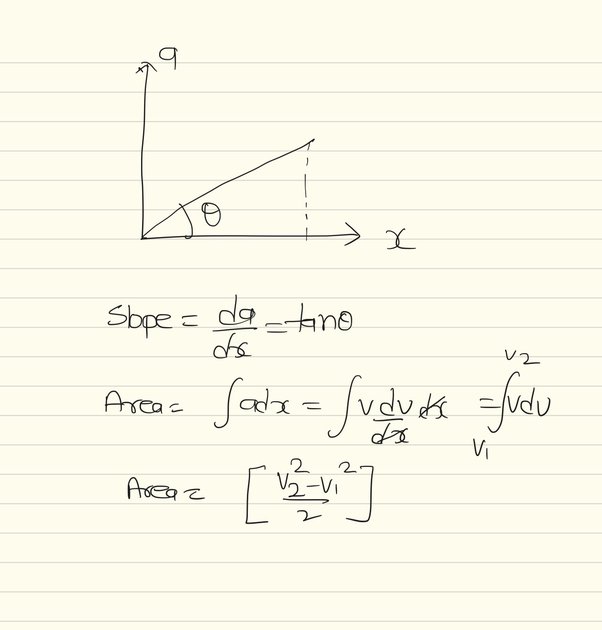 a
θ
x
Slope = da/dx = tanθ
Area = ∫adx = ∫v dv/dx dx = ∫_{v₁}^{v₂} vdv
Area = [(v₂² - v₁²)/2]